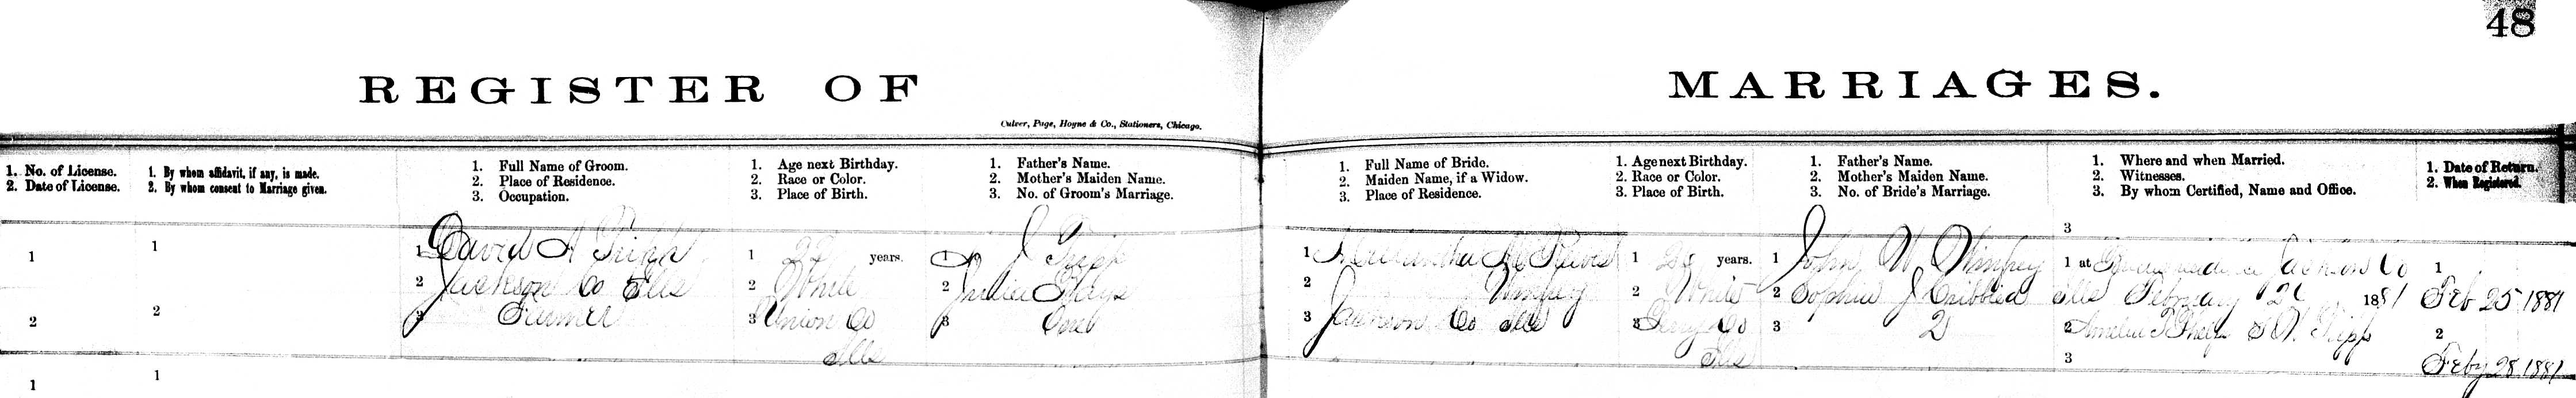 48
REGISTER OF MARRIAGES.
Culver, Page, Hoyne & Co., Stationers, Chicago.
1. No. of License.
2. Date of License.
1. By whom affidavit, if any, is made.
2. By whom consent to Marriage given.
1. Full Name of Groom.
2. Place of Residence.
3. Occupation.
1. Age next Birthday.
2. Race or Color.
3. Place of Birth.
1. Father's Name.
2. Mother's Maiden Name.
3. No. of Groom's Marriage.
1. Full Name of Bride.
2. Maiden Name, if a Widow.
3. Place of Residence.
1. Age next Birthday.
2. Race or Color.
3. Place of Birth.
1. Father's Name.
2. Mother's Maiden Name.
3. No. of Bride's Marriage.
1. Where and when Married.
2. Witnesses.
3. By whom Certified, Name and Office.
1. Date of Return.
2. When Registered.
3
1
2
1
2
1 David A Tripp
2 Jackson Co Ills
3 Farmer
1 22 years.
2 White
3 Union Co
Ills
1 J Tripp
2 Julia Hays
3 One
1
2 Wimpey
3 Jackson Co Ills
1 years.
2 White
3 Perry Co
Ills
1 John W Wimpey
2 Sophia J
3 2
1 at Jackson Co
Ills February 1881
2 Tripp
3
1
Feb 25 1881
2
Feby 28 1881
1
1